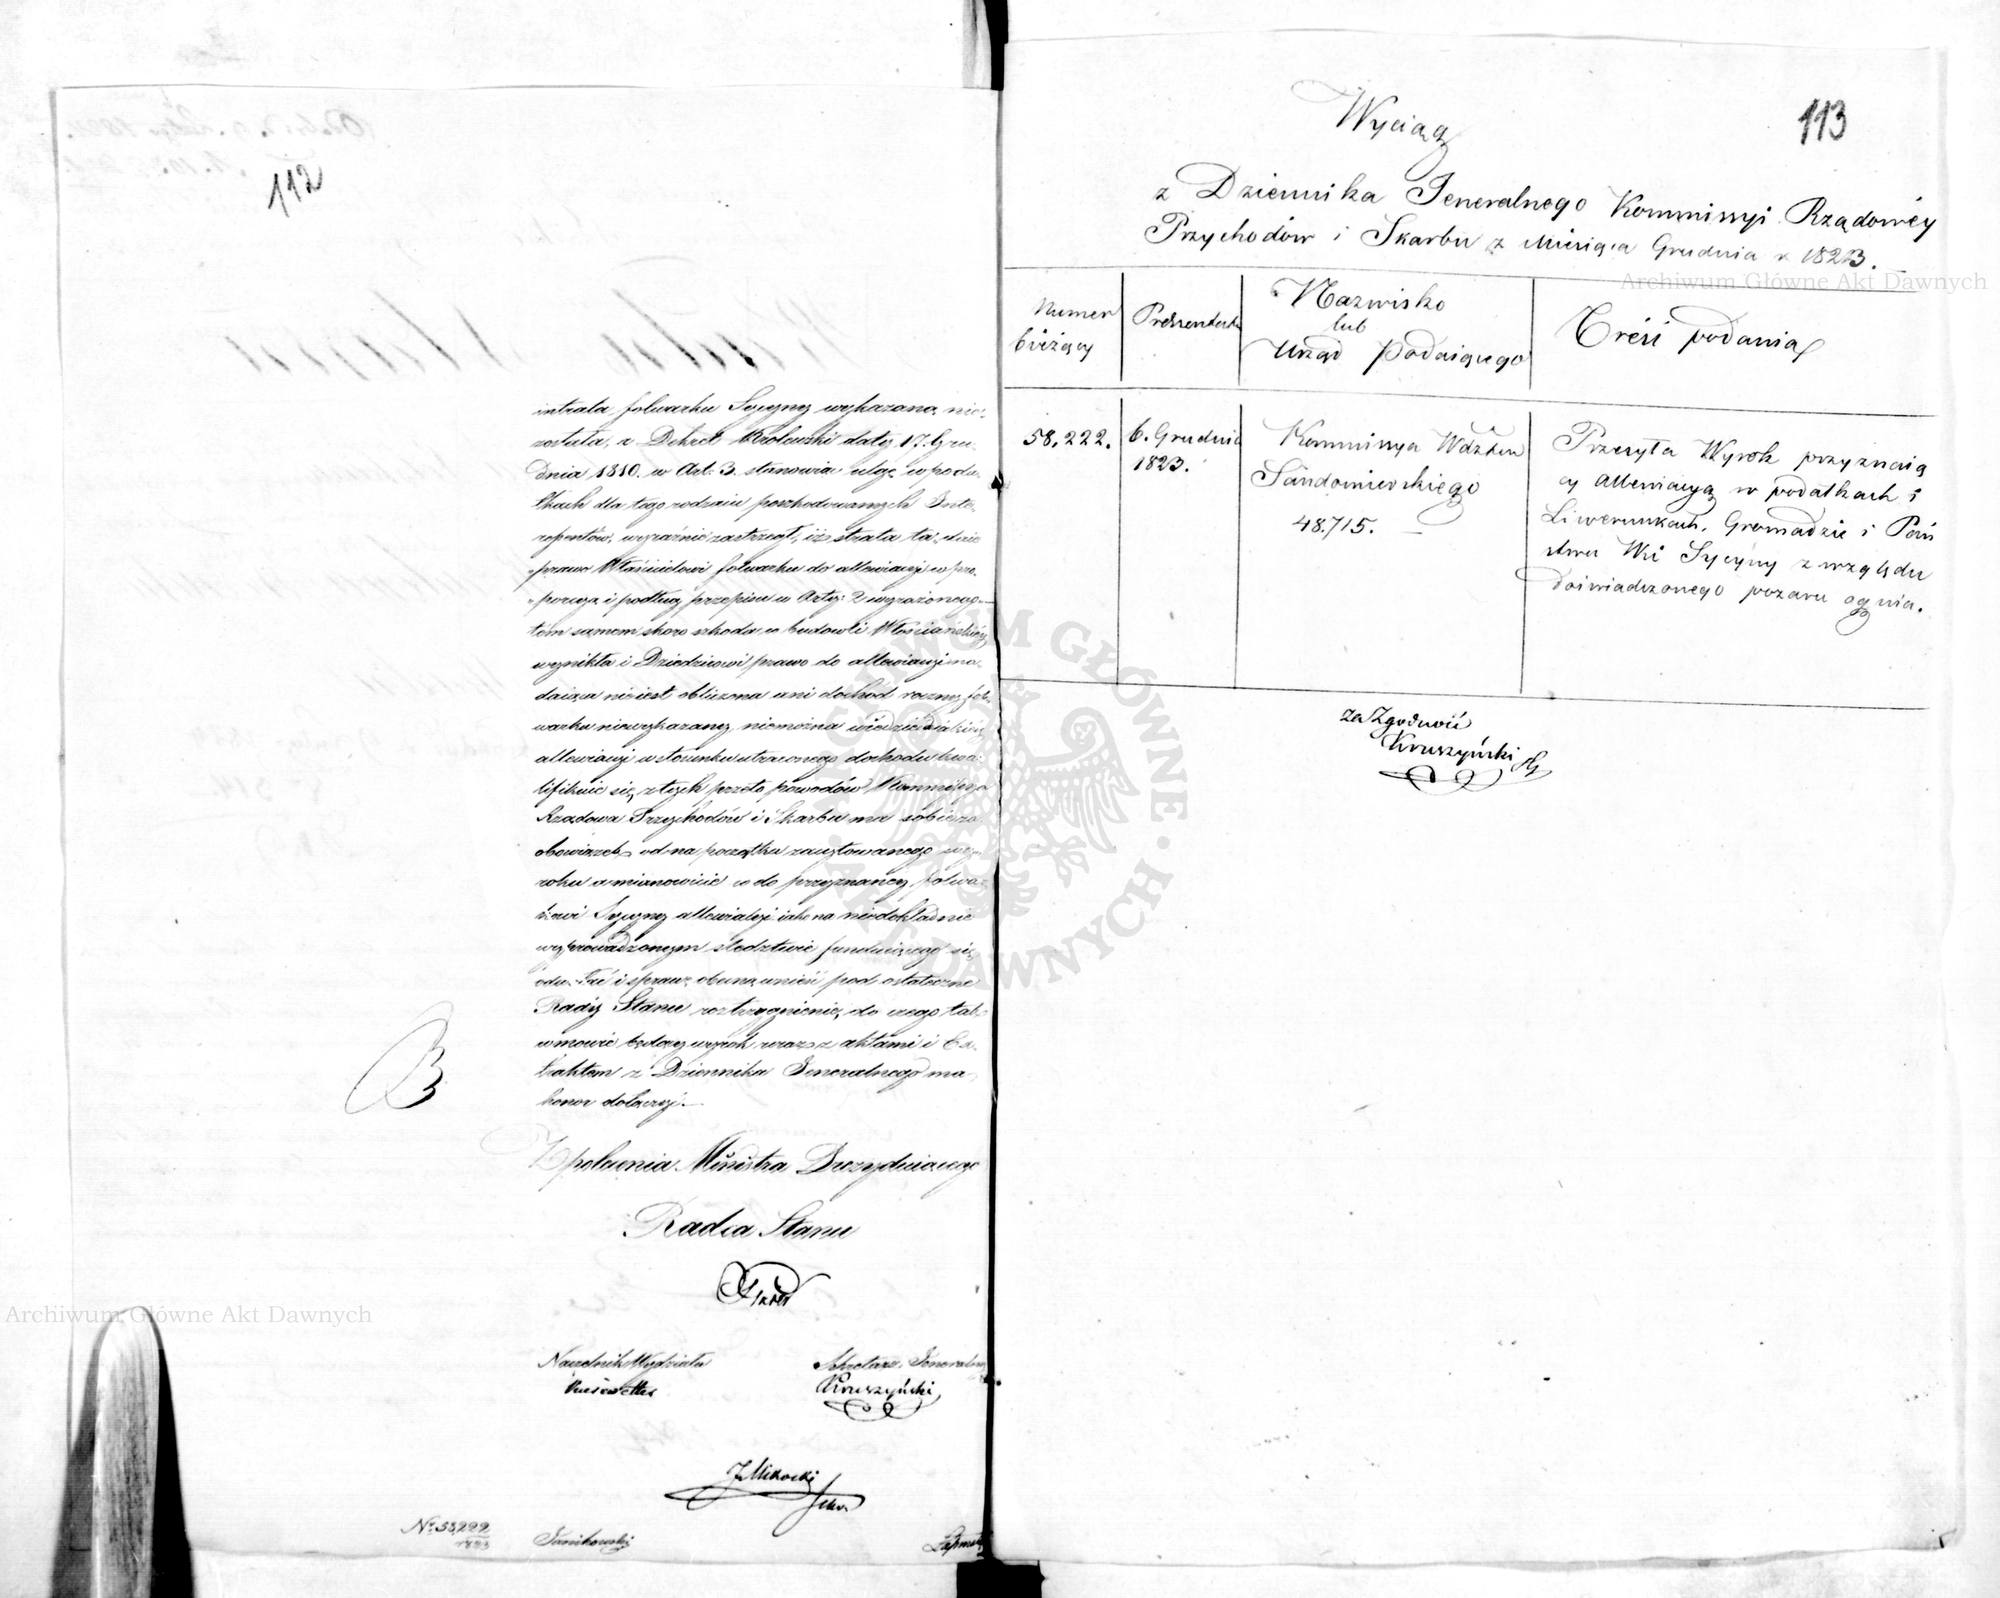 112
intrata folwarku Sycyny wykazaną nie„
została, a Dekret Królewski daty 17. Gru„
dnia 1810. w Art: 3. stanowiąc ulgę w poda„
tkach dla tego rodzaiu poszkodowanych Inte„
ressentów, wyraźnie zastrzegł, iż strata ta, daie
„prawo Właścicielowi folwarku do allewiacyi w pro„
„porcyi i podług przepisu w Arty: 2 wyrażonego„
tém samem skoro szkoda w budowli Włościańskiéy
wynikła i Dziedzicowi prawo do allewiacyi na„
daiąca nie iest obliczona ani dochód roczny fol„
warku niewykazany, niemożna wiedzieć iakiéy
allewiacyi w stosunku utraconego dochodu kwa„
lifikuie się, z tych przeto powodów Kommissya
Rządowa Przychodów i Skarbu ma sobie za
obowiązek, od na początku zacytowanego wy„
roku a mianowicie co do przyznanéy folwa„
rkowi Sycyny allewiacyi iako na niedokładnie
wyprowadzonym śledztwie funduiącego się,
i sprawę unieść pod ostateczne
Rady Stanu rozstrzygnienie, do czego tak
w mowie będący wyrok wraz z aktami i Ex„
traktem z Dziennika Jeneralnego ma
honor dołączyć.
Z polecenia Ministra Prezyduiącego
Radca Stanu
Naczelnik Wydziału
Sekretarz Jeneralny
Kruszyński
Nº 58,222
1823
Janikowski
113
Wyciąg
z Dziennika Jeneralnego Kommissyi Rządowéy
Przychodów i Skarbu z Miesiąca Grudnia r. 1823.
Numer bieżący
Prezentata
Nazwisko lub Urząd Podaiącego
Treść podania
58,222.
6. Grudnia 1823.
Kommissya Wdztwa
Sandomierskiego
48.715. —
Przesyła Wyrok przyznaią
cy allewiacyą w podatkach i
Liwerunkach, Gromadzie i Pań
stwu Wsi Sycyny z względu
doświadczonego pożaru ognia.
Za Zgodność
Kruszyński
Archiwum Główne Akt Dawnych
Archiwum Główne Akt Dawnych
ARCHIWUM GŁÓWNE AKT DAWNYCH